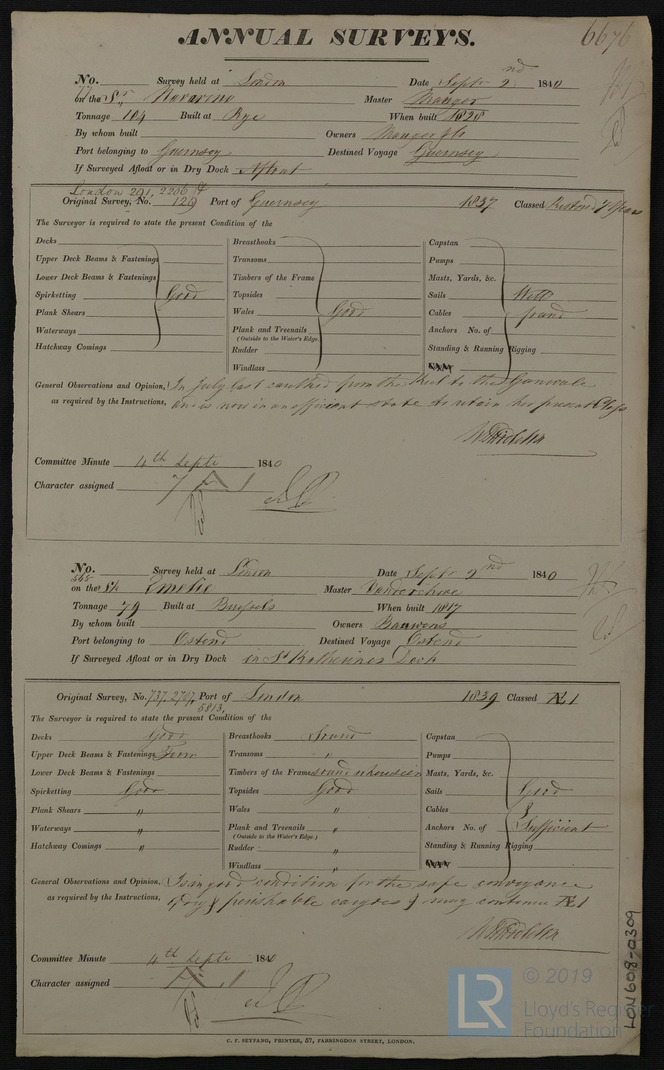 ANNUAL SURVEYS.
6676
No. Survey held at London Date Septr 2nd 1840
77
on the Sr Navarino Master Mauger
Tonnage 104 Built at Rye When built 1828
By whom built Owners Mauger &Co
Port belonging to Guernsey Destined Voyage Guernsey
If Surveyed Afloat or in Dry Dock Afloat
London 291, 2206 &
Original Survey, No. 129 Port of Guernsey 1837 Classed Restored 7 Years
The Surveyor is required to state the present Condition of the
Decks
Upper Deck Beams & Fastenings
Lower Deck Beams & Fastenings
Spirketting Good
Plank Shears
Waterways
Hatchway Comings
Breasthooks
Transoms
Timbers of the Frame
Topsides
Wales Good
Plank and Treenails
(Outside to the Water's Edge.
Rudder
Windlass
Capstan
Pumps
Masts, Yards, &c.
Sails Well
Cables found
Anchors No. of
Standing & Running Rigging
General Observations and Opinion, In July last caulked from the Keel to the Gunwale
as required by the Instructions, and is now in an efficient state to retain her present Class
Committee Minute 4th Septr 1840
Character assigned
No. Survey held at London Date Septr 2nd 1840
565
on the Sk Emelie Master
Tonnage 79 Built at Brussels When built 1817
By whom built Owners Bauwens
Port belonging to Ostend Destined Voyage Ostend
If Surveyed Afloat or in Dry Dock in St Katherines Dock
Original Survey, No. 737, 2767, Port of London 1839 Classed Æ1
5813,
The Surveyor is required to state the present Condition of the
Decks Good
Upper Deck Beams & Fastenings Firm
Lower Deck Beams & Fastenings
Spirketting Good
Plank Shears "
Waterways "
Hatchway Comings "
Breasthooks Sound
Transoms "
Timbers of the Frame sound where seen
Topsides Good
Wales "
Plank and Treenails "
(Outside to the Water's Edge.)
Rudder "
Windlass "
Capstan
Pumps
Masts, Yards, &c.
Sails Good
Cables &
Anchors No. of Sufficient
Standing & Running Rigging
General Observations and Opinion, Is in good condition for the safe conveyance
as required by the Instructions, of Dry & perishable cargoes & may continue Æ1
Committee Minute 4th Septr 1840
Character assigned
C. F. SEYFANG, PRINTER, 57, FARRINGDON STREET, LONDON.
LON608-0309
LR © 2019
Lloyd's Register
Foundation